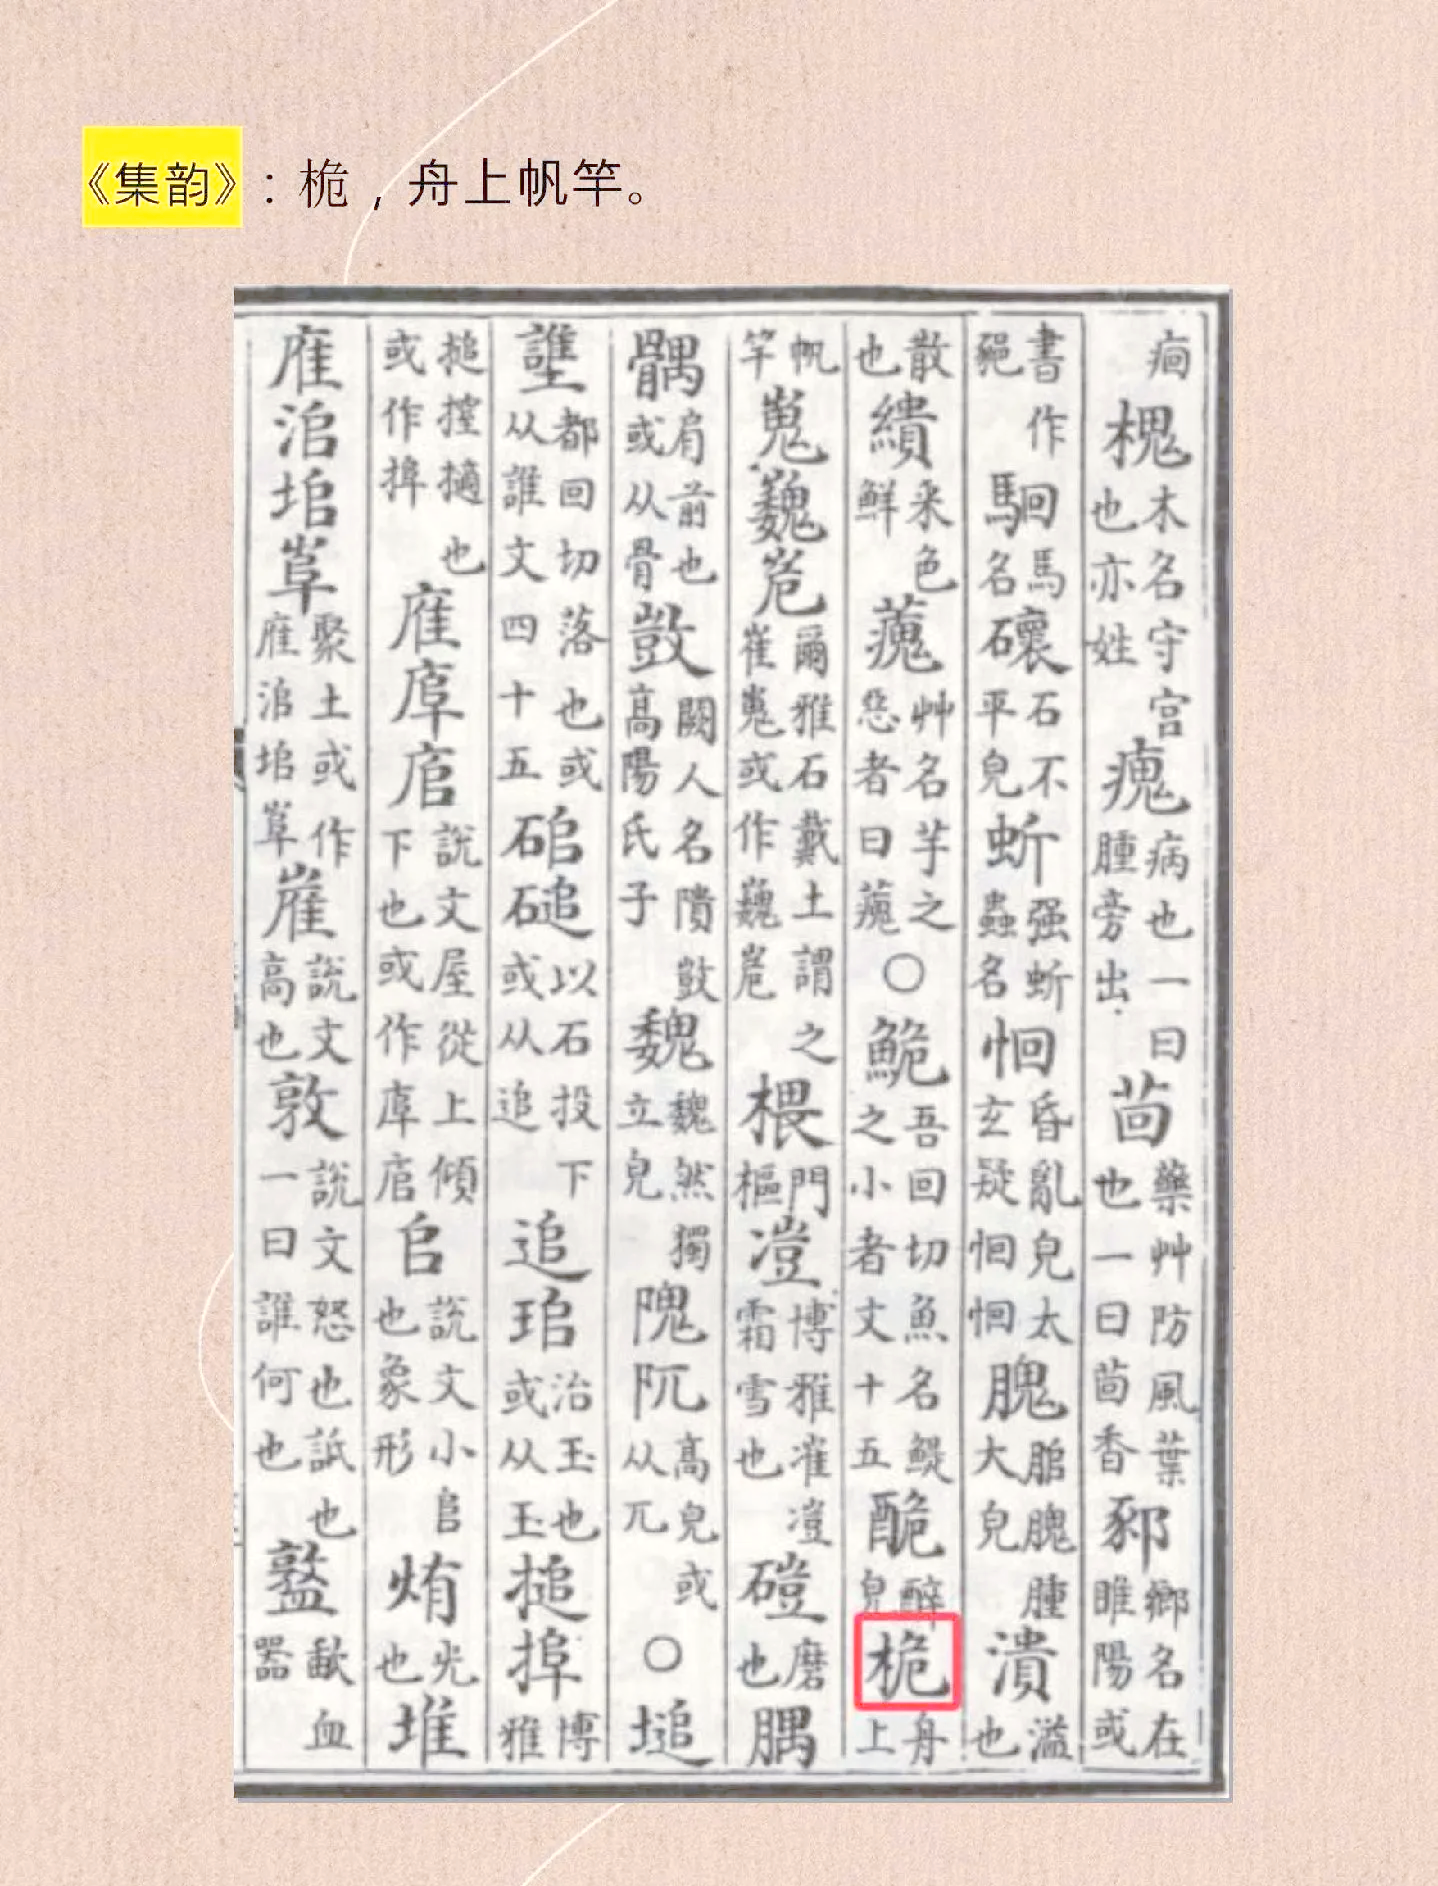 《集韵》：桅，舟上帆竿。
㾯槐木名守宮也亦姓瘣病也一曰腫旁出茴藥艸防風葉也一曰茴香䣋鄉名在睢陽或
書作䣋駠馬名䃶石不平皃蚚强蚚蟲名恛昏亂皃太玄疑恛恛膭䐯腫大皃潰溢也
散也繢采色鮮蘾艸名芋之惡者曰蘾○鮠吾回切魚名鯷之小者文十五㕒醉皃桅舟上
帆竿嵬巍峞爾雅石戴土謂之崔嵬或作巍峞椳門樞溰博雅漼溰霜雪也磑磨也腢
髃肩前也或从骨敳闕人名隤敳高陽氏子魏魏然獨立皃隗阢高皃或从兀○塠
䜅都回切落也或从誰文四十五磓以石投下或从追追琟治玉也或从玉搥㨃博雅
搥摚擿也或作㨃㢈㢈㢈說文屋從上傾下也或作㢈𠂤說文小𨸏也象形烠光也堆
㢈㴜塠㟋聚土或作㢈㴜塠㟋嶊說文高也敦說文怒也詆也一曰誰何也䥞歃血器